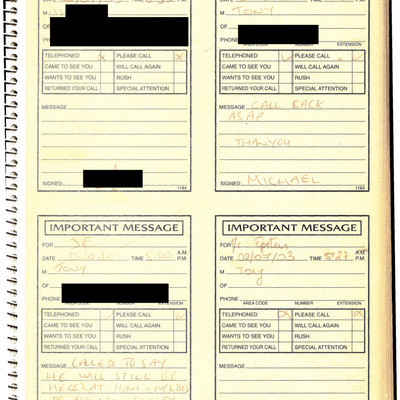 M
OF
PHONE
TELEPHONED X PLEASE CALL X
CAME TO SEE YOU WILL CALL AGAIN
WANTS TO SEE YOU RUSH
RETURNED YOUR CALL SPECIAL ATTENTION
MESSAGE
SIGNED
1184
M TONY
OF
PHONE
AREA CODE NUMBER EXTENSION
TELEPHONED PLEASE CALL
CAME TO SEE YOU WILL CALL AGAIN
WANTS TO SEE YOU RUSH
RETURNED YOUR CALL SPECIAL ATTENTION
MESSAGE CALL BACK
ASAP
THANYOU
SIGNED MICHAEL
1184
IMPORTANT MESSAGE
FOR JE
DATE TIME 5:00 A.M.
P.M.
M TONY
OF
PHONE
AREA CODE NUMBER EXTENSION
TELEPHONED PLEASE CALL
CAME TO SEE YOU WILL CALL AGAIN
WANTS TO SEE YOU RUSH
RETURNED YOUR CALL SPECIAL ATTENTION
MESSAGE CALLED TO SAY
HE WILL STILL BE
HERE AT 11AM - NEEDED
IMPORTANT MESSAGE
FOR Epstein
DATE 02/07/03 TIME 5:27 A.M.
P.M.
M Tony
OF
PHONE
AREA CODE NUMBER EXTENSION
TELEPHONED PLEASE CALL
CAME TO SEE YOU WILL CALL AGAIN
WANTS TO SEE YOU RUSH
RETURNED YOUR CALL SPECIAL ATTENTION
MESSAGE